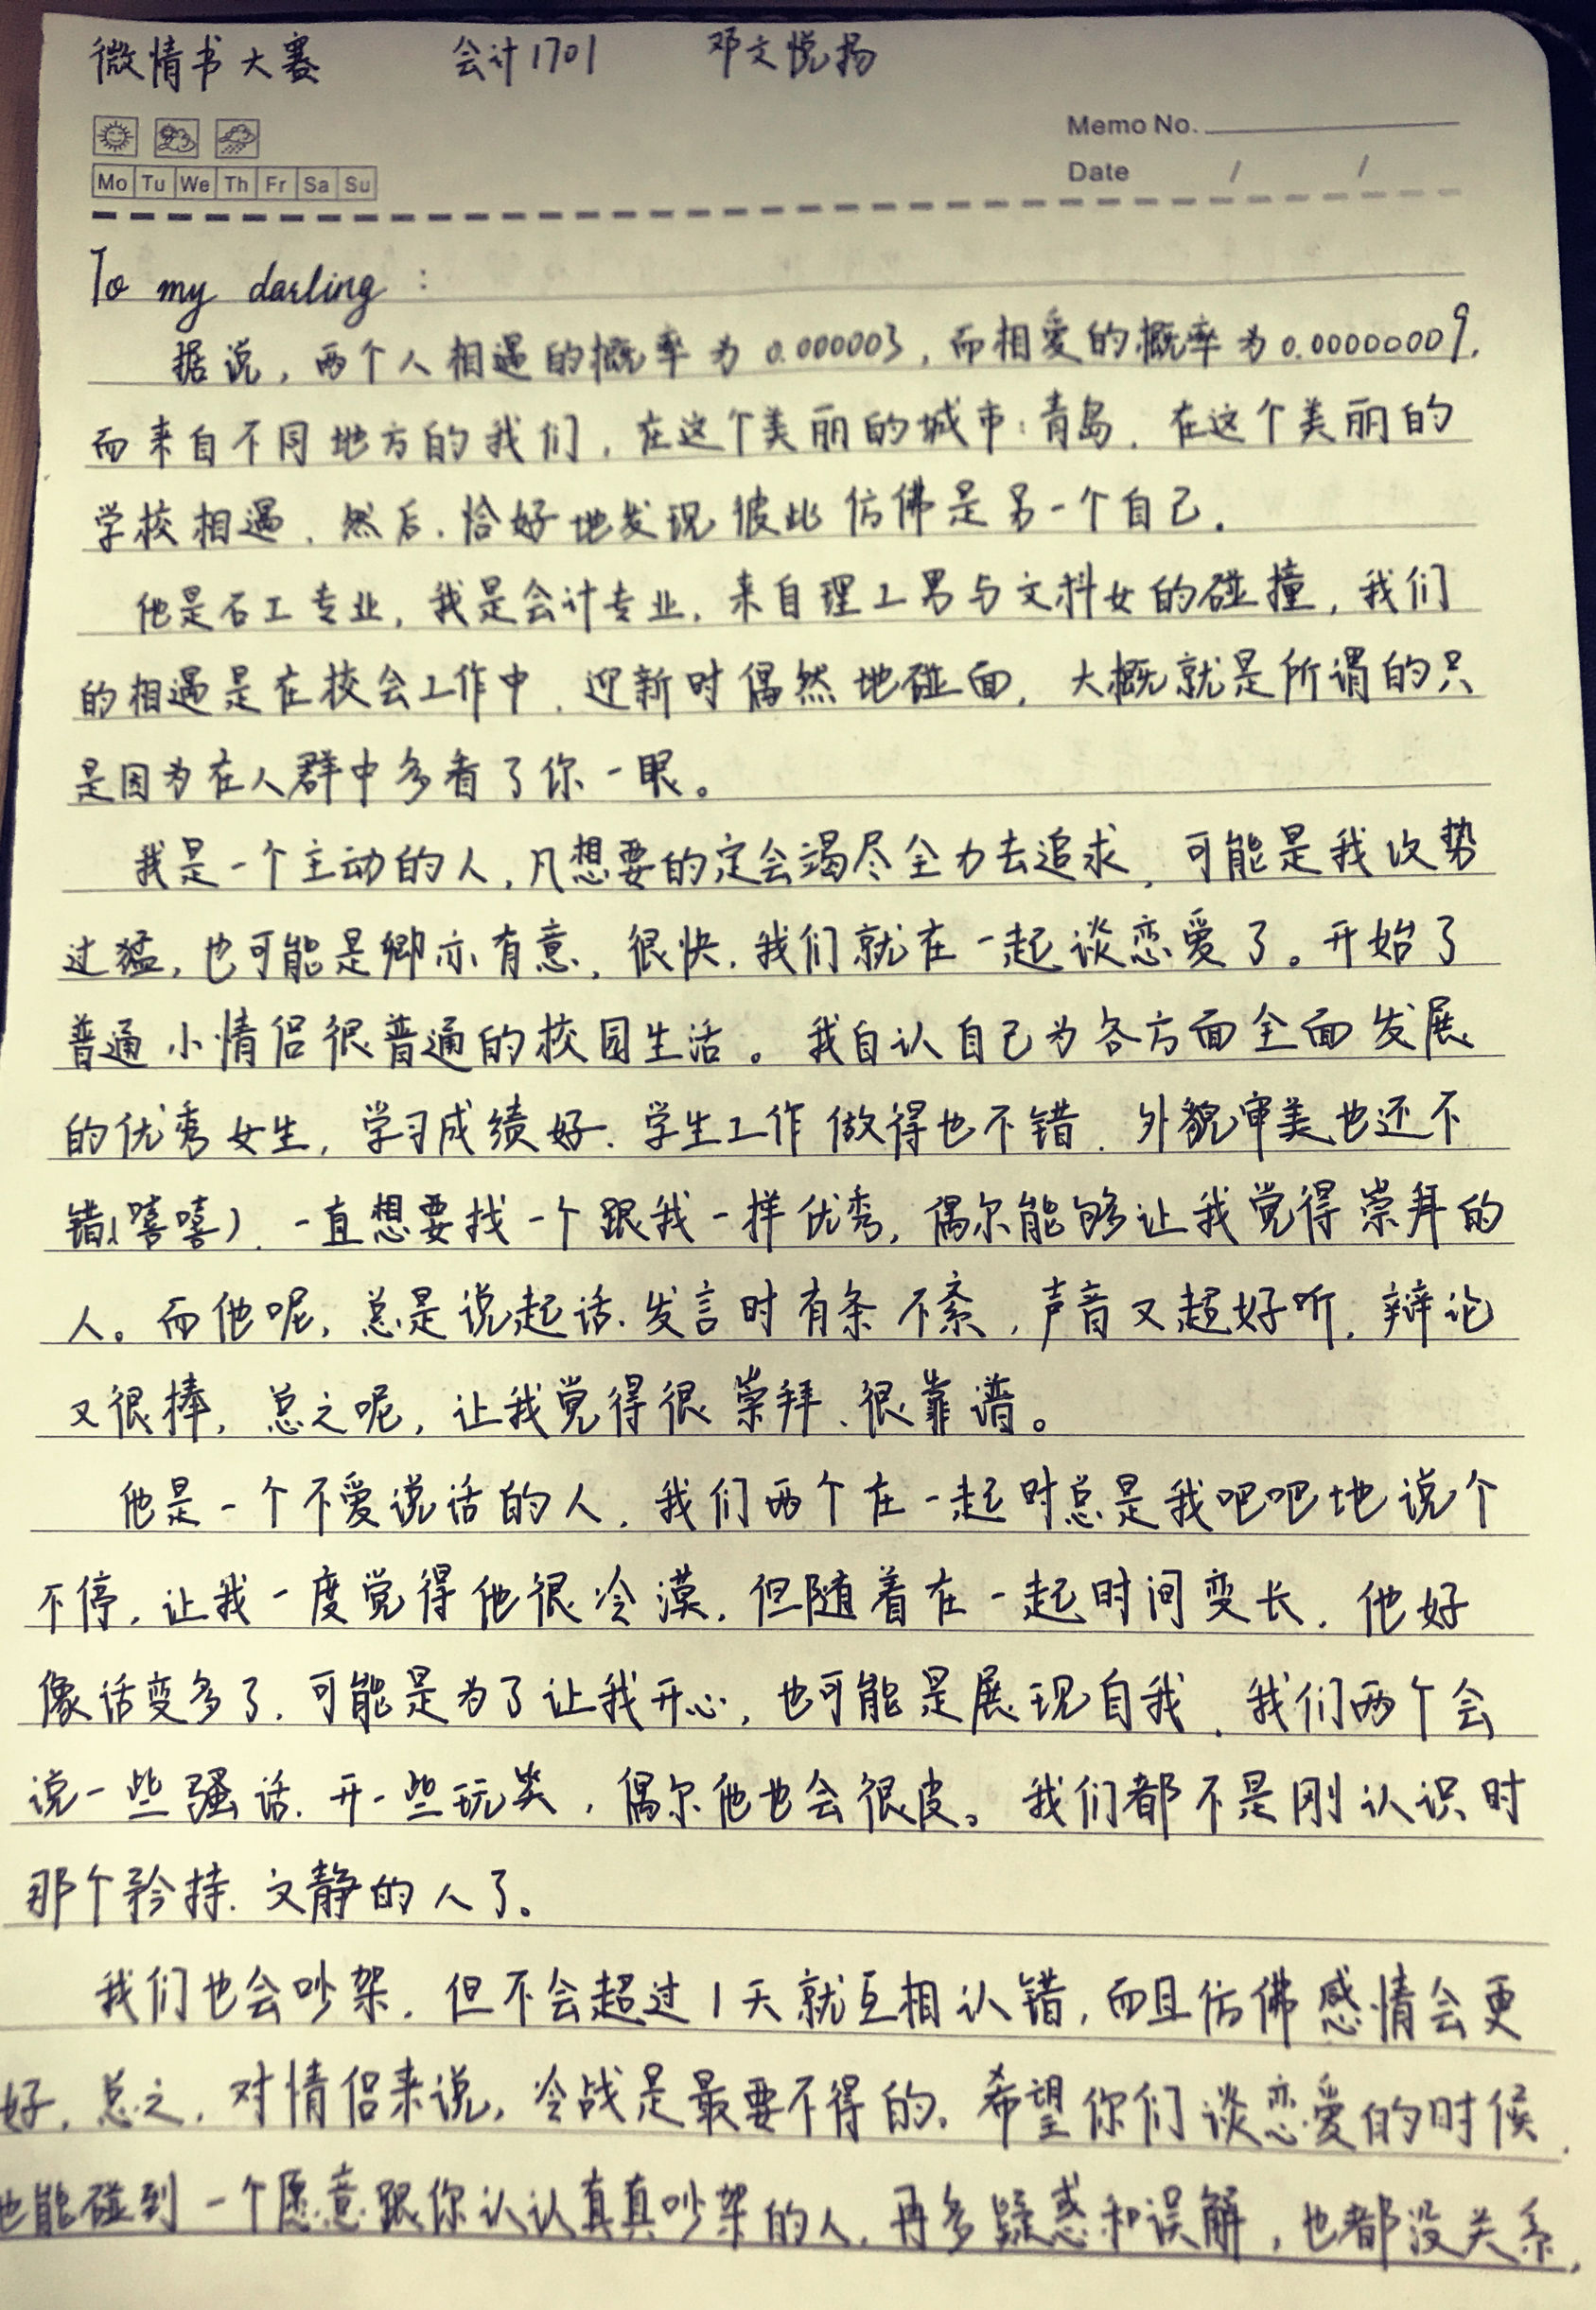 微情书大赛 会计1701 邓文悦扬
Memo No.
Mo Tu We Th Fr Sa Su
Date / /
To my darling:
据说，两个人相遇的概率为0.000003，而相爱的概率为0.00000009，
而来自不同地方的我们，在这个美丽的城市：青岛，在这个美丽的
学校相遇，然后，恰好地发现彼此仿佛是另一个自己。
他是石工专业，我是会计专业，来自理工男与文科女的碰撞，我们
的相遇是在校会工作中，迎新时偶然地碰面，大概就是所谓的只
是因为在人群中多看了你一眼。
我是一个主动的人，凡想要的定会竭尽全力去追求，可能是我攻势
过猛，也可能是卿亦有意，很快，我们就在一起谈恋爱了。开始了
普通小情侣很普通的校园生活。我自认自己为各方面全面发展
的优秀女生，学习成绩好、学生工作做得也不错，外貌审美也还不
错（嘻嘻），一直想要找一个跟我一样优秀，偶尔能够让我觉得崇拜的
人。而他呢，总是说起话、发言时有条不紊，声音又超好听，辩论
又很棒，总之呢，让我觉得很崇拜、很靠谱。
他是一个不爱说话的人，我们两个在一起时总是我吧吧地说个
不停，让我一度觉得他很冷漠，但随着在一起时间变长，他好
像话变多了，可能是为了让我开心，也可能是展现自我，我们两个会
说一些骚话、开一些玩笑，偶尔他也会很皮。我们都不是刚认识时
那个矜持、文静的人了。
我们也会吵架，但不会超过1天就互相认错，而且仿佛感情会更
好，总之，对情侣来说，冷战是最要不得的。希望你们谈恋爱的时候，
也能碰到一个愿意跟你认认真真吵架的人，再多疑惑和误解，也都没关系，